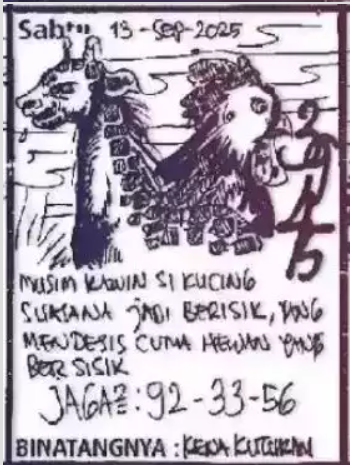 Sabtu 13-Sep-2025
MUSIM KAWIN SI KUCING
SUASANA JADI BERISIK, YANG
MENDESIS CUMA HEWAN YANG
BERSISIK
JAGA2 : 92-33-56
BINATANGNYA : KENA KUTUKAN